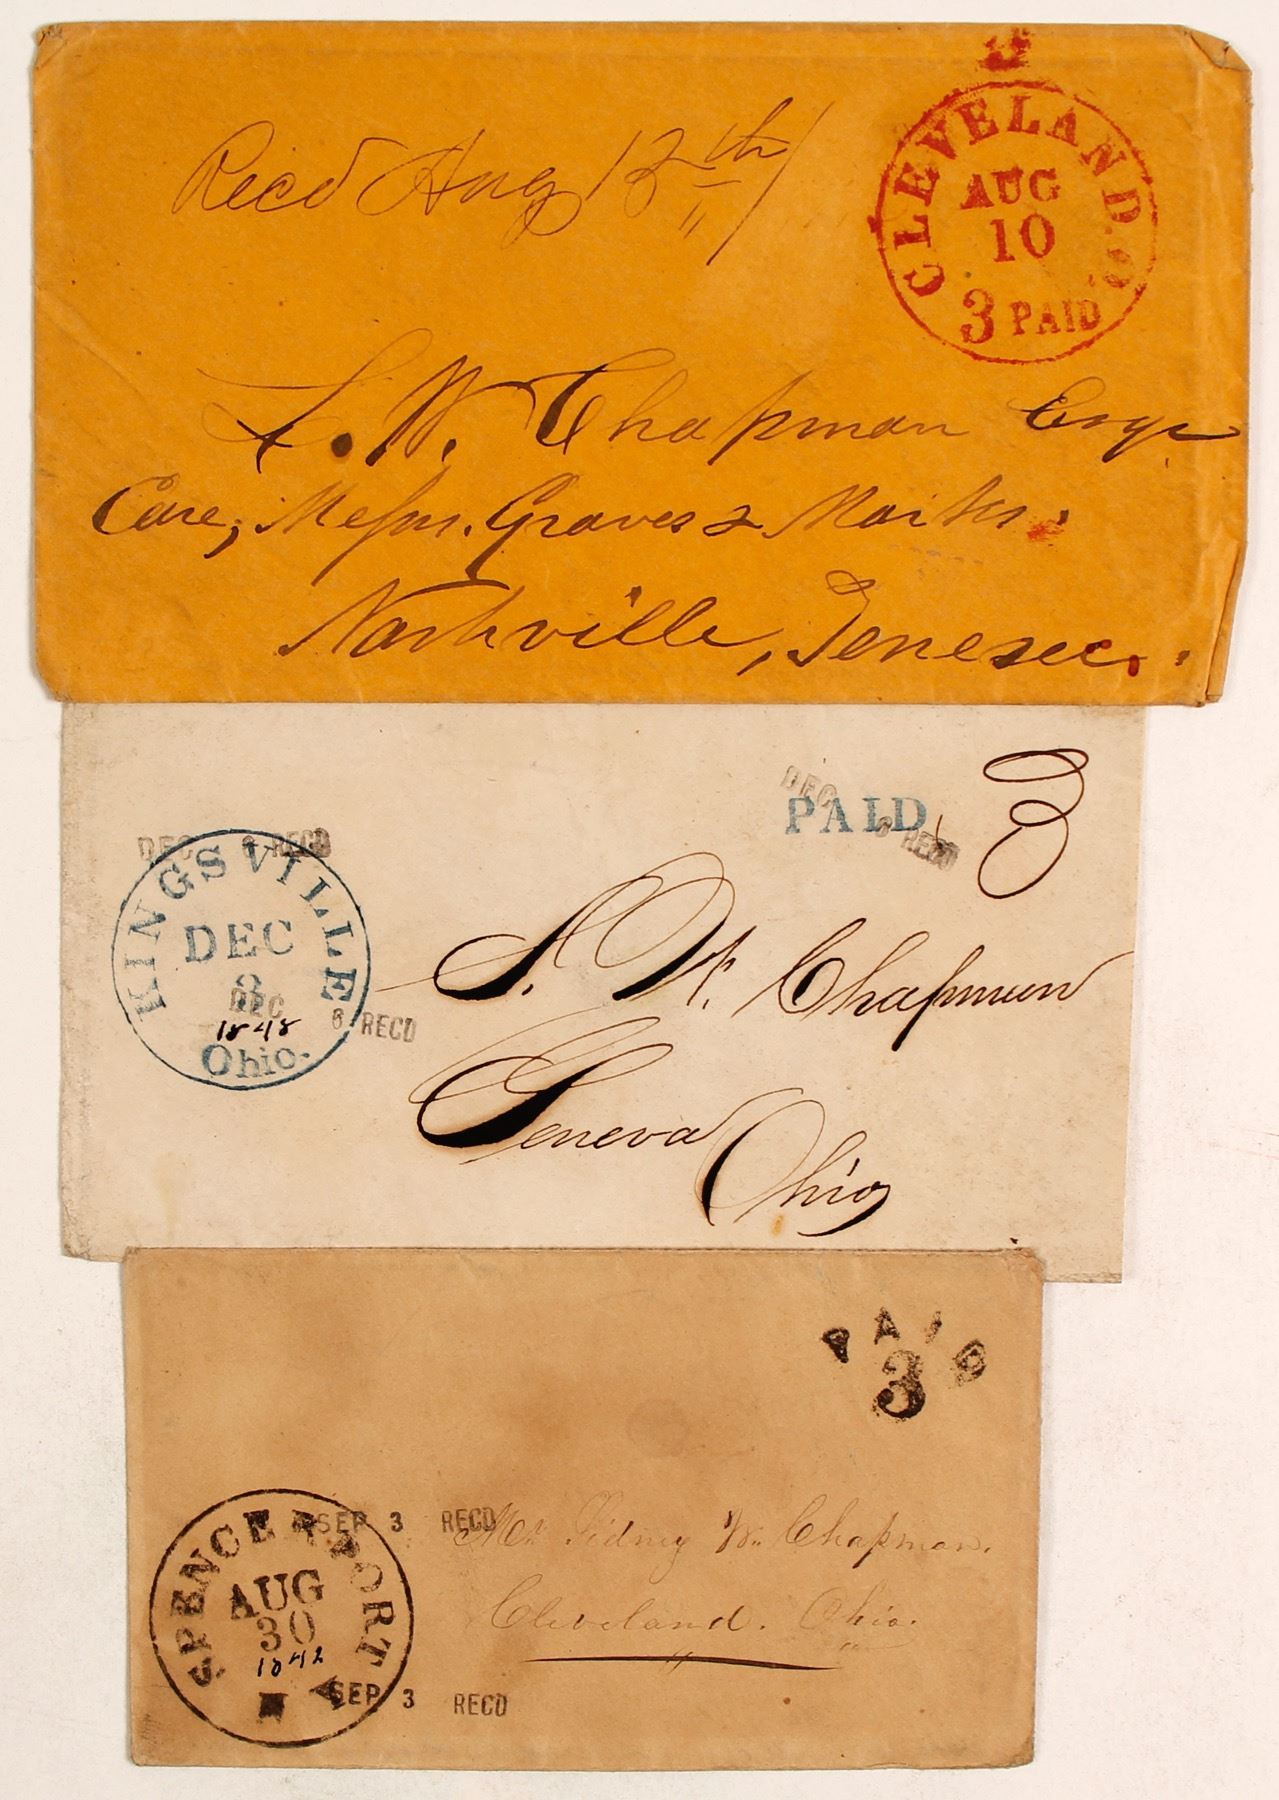 CLEVELAND. O.
AUG
10
3 PAID
Recd Aug 13th
S. W. Chapman Esqr
Care, Messrs. Graves & Marks.
Nashville, Tenesee.
DEC RECD
KINGSVILLE
DEC
3
DEC
6 RECD
1848
Ohio.
DEC
PAID
6 RECD
3
S. W. Chapman
Geneva
Ohio
PAID
3
SPENCERPORT
AUG
30
1842
N
SEP 3 RECD
Mr. Sidney W. Chapman.
Cleveland. Ohio.
SEP 3 RECD